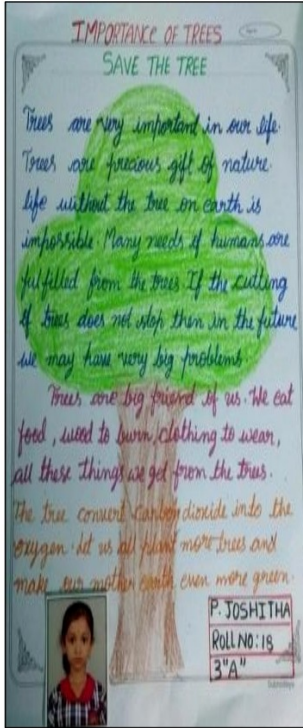 IMPORTANCE OF TREES
SAVE THE TREE
Trees are very important in our life.
Trees are precious gift of nature.
life without the tree on earth is
impossible. Many needs of humans are
fulfilled from the trees. If the cutting
of trees does not stop then in the future
we may have very big problems
Trees are big friend of us. We eat
food, wood to burn, clothing to wear,
all these things we get from the trees.
The tree convert carbon dioxide into the
oxygen. Let us all plant more trees and
make our mother earth even more green.
P. JOSHITHA
ROLL NO: 18
3"A"